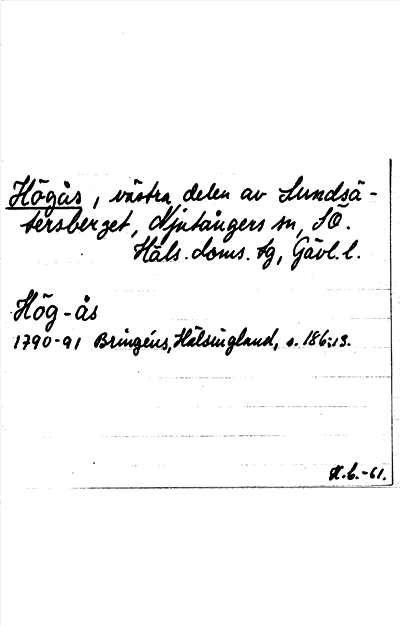 Högås, västra delen av Sundsä-
tersberget, Njutångers sn, SÖ.
Häls. doms. tg, Gävl. l.
Hög-ås
1790-91 Bringéus, Hälsingland, s. 186:13.
H.C.-61.